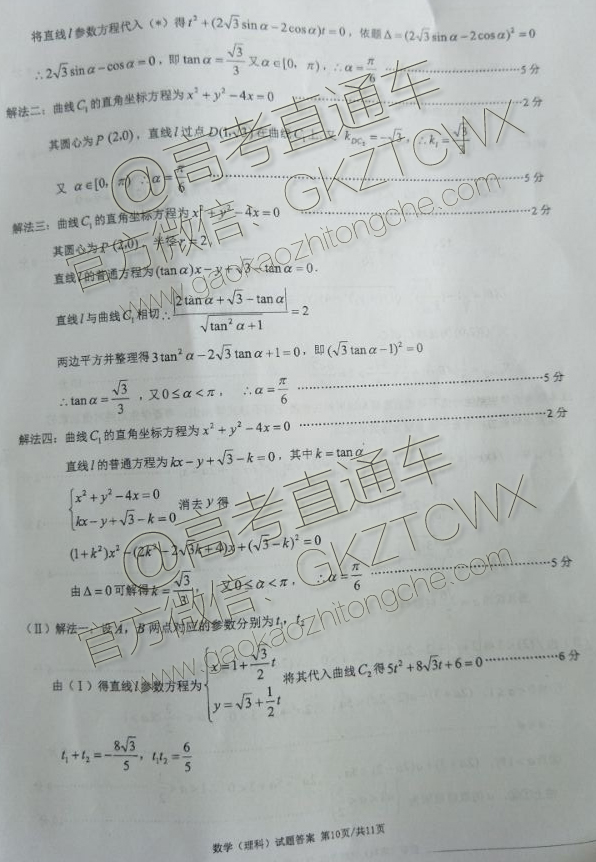 将直线l参数方程代入（*）得t²+(2√3sinα-2cosα)t=0，依题Δ=(2√3sinα-2cosα)²=0
∴2√3sinα-cosα=0，即tanα=√3/3 又α∈[0，π)，∴α=π/6 ……………………5分
解法二：曲线C₁的直角坐标方程为x²+y²-4x=0 ……………………2分
其圆心为P (2,0)，直线l过点D(1,√3)在曲线C₁上
k_{DC₂}=-√3，∴k_l=√3/3
又 α∈[0，π) ∴α=π/6 ……………………5分
解法三：曲线C₁的直角坐标方程为x²+y²-4x=0 ……………………2分
其圆心为P (2,0)，半径r=2
直线l的普通方程为(tanα)x-y+√3-tanα=0.
直线l与曲线C₁相切∴|2tanα+√3-tanα|/√(tan²α+1)=2
两边平方并整理得3tan²α-2√3tanα+1=0，即(√3tanα-1)²=0
∴tanα=√3/3，又0≤α<π， ∴α=π/6 ……………………5分
解法四：曲线C₁的直角坐标方程为x²+y²-4x=0 ……………………2分
直线l的普通方程为kx-y+√3-k=0，其中k=tanα
{x²+y²-4x=0
kx-y+√3-k=0 消去y得
(1+k²)x²-(2k²-2√3k+4)x+(√3-k)²=0
由Δ=0可解得k=√3/3， 又0≤α<π， ∴α=π/6 ……………………5分
(Ⅱ) 解法一：设A，B两点对应的参数分别为t₁，t₂
由(Ⅰ)得直线l参数方程为{x=1+√3/2 t
y=√3+1/2 t 将其代入曲线C₂得5t²+8√3t+6=0 ……………6分
t₁+t₂=-8√3/5，t₁t₂=6/5
数学（理科）试题答案 第10页/共11页
@高考直通车
官方微信：GKZTCWX
www.gaokaozhitongche.com
@高考直通车
官方微信：GKZTCWX
www.gaokaozhitongche.com